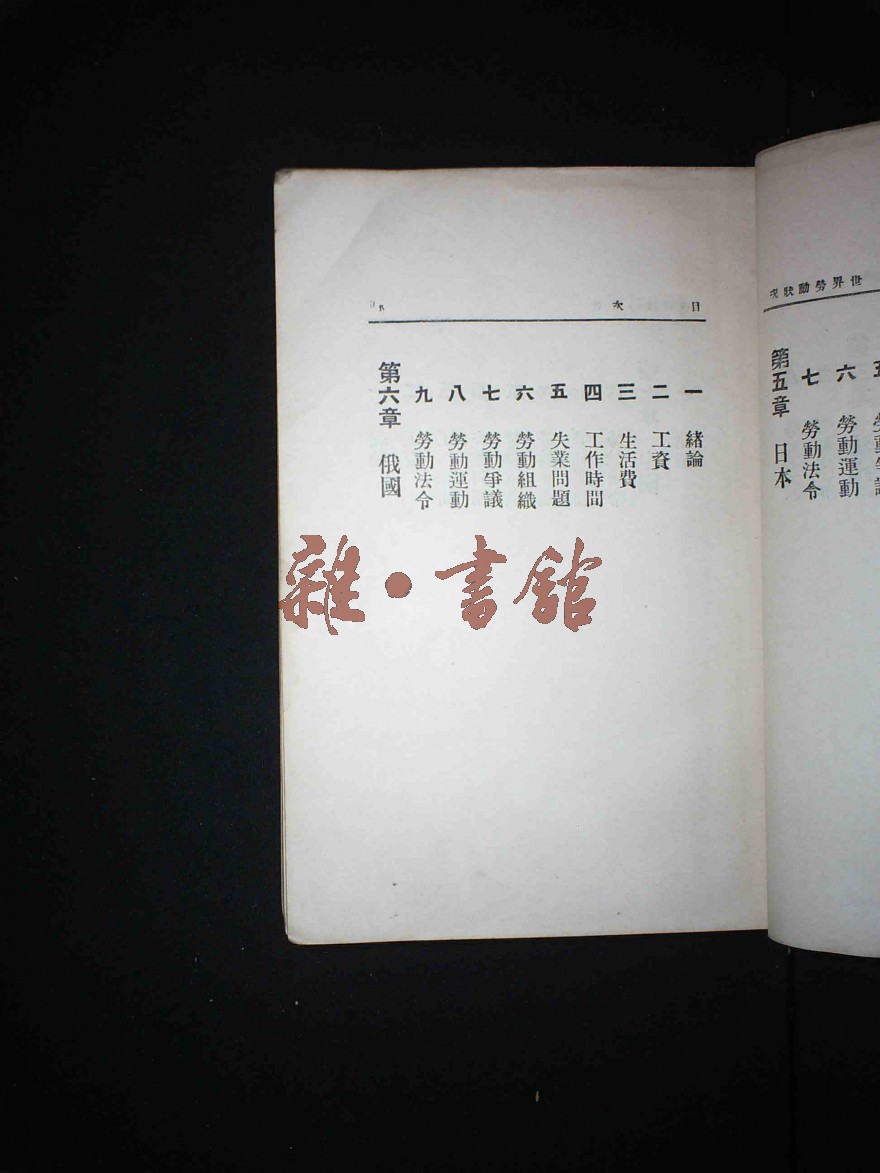 世界勞動狀況
六 勞動運動
七 勞動法令
第五章 日本
目次
一 緒論
二 工資
三 生活費
四 工作時間
五 失業問題
六 勞動組織
七 勞動爭議
八 勞動運動
九 勞動法令
第六章 俄國
雜·書館